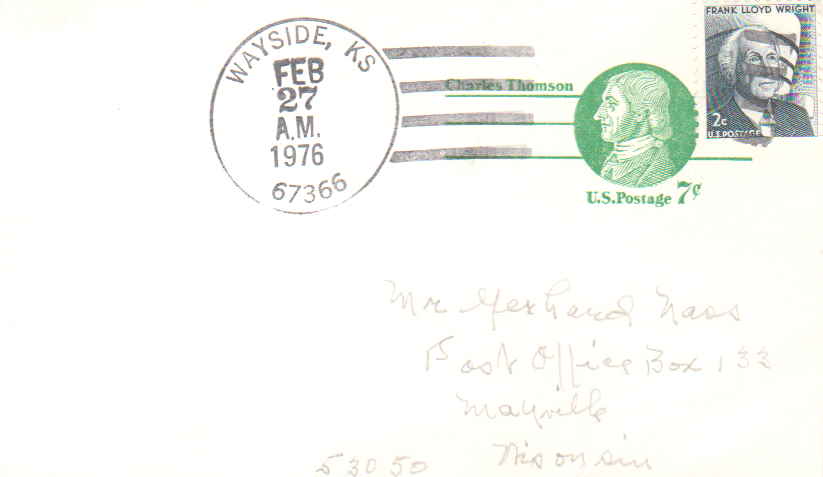 WAYSIDE, KS
FEB
27
A.M.
1976
67366
Charles Thomson
U.S. Postage 7¢
FRANK LLOYD WRIGHT
2c
U.S. POSTAGE
Mr Gerhard Naas
Post Office Box 133
Mayville
Wisonsin
53050